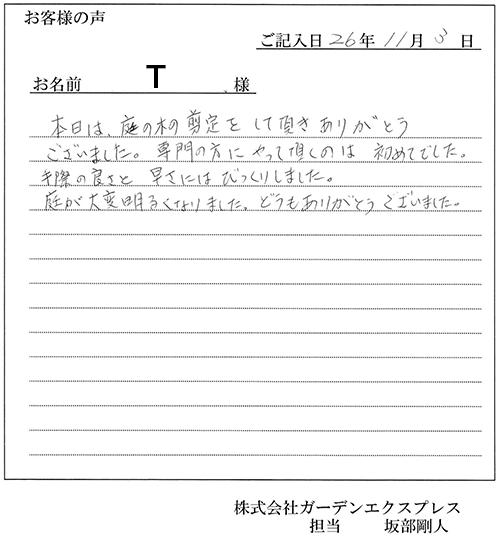 お客様の声
ご記入日 26年 11月 3日
お名前 T 様
本日は、庭の木の剪定をして頂きありがとう
ございました。専門の方にやって頂くのは 初めてでした。
手際の良さと 早さには びっくりしました。
庭が大変明るくなりました。どうもありがとうございました。
株式会社ガーデンエクスプレス
担当 坂部剛人